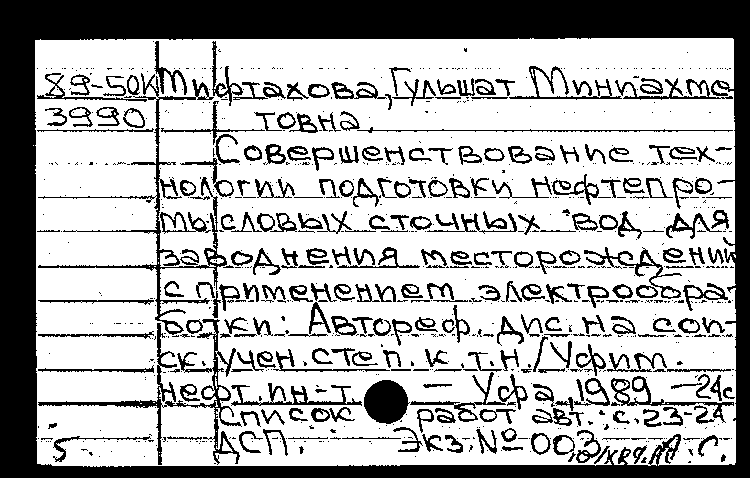 89-50К Мифтахова, Гульшат Миниахме
3990 товна.
Совершенствование тех-
нологии подготовки нефтепро-
мысловых сточных вод для
заводнения месторождений
с применением электрообра-
ботки: Автореф. дис. на сои-
ск. учен. степ. к. т. н. / Уфим.
нефт. ин-т. — Уфа, 1989. — 24с
Список работ авт.: с. 23-24.
5 ДСП. Экз. № 003